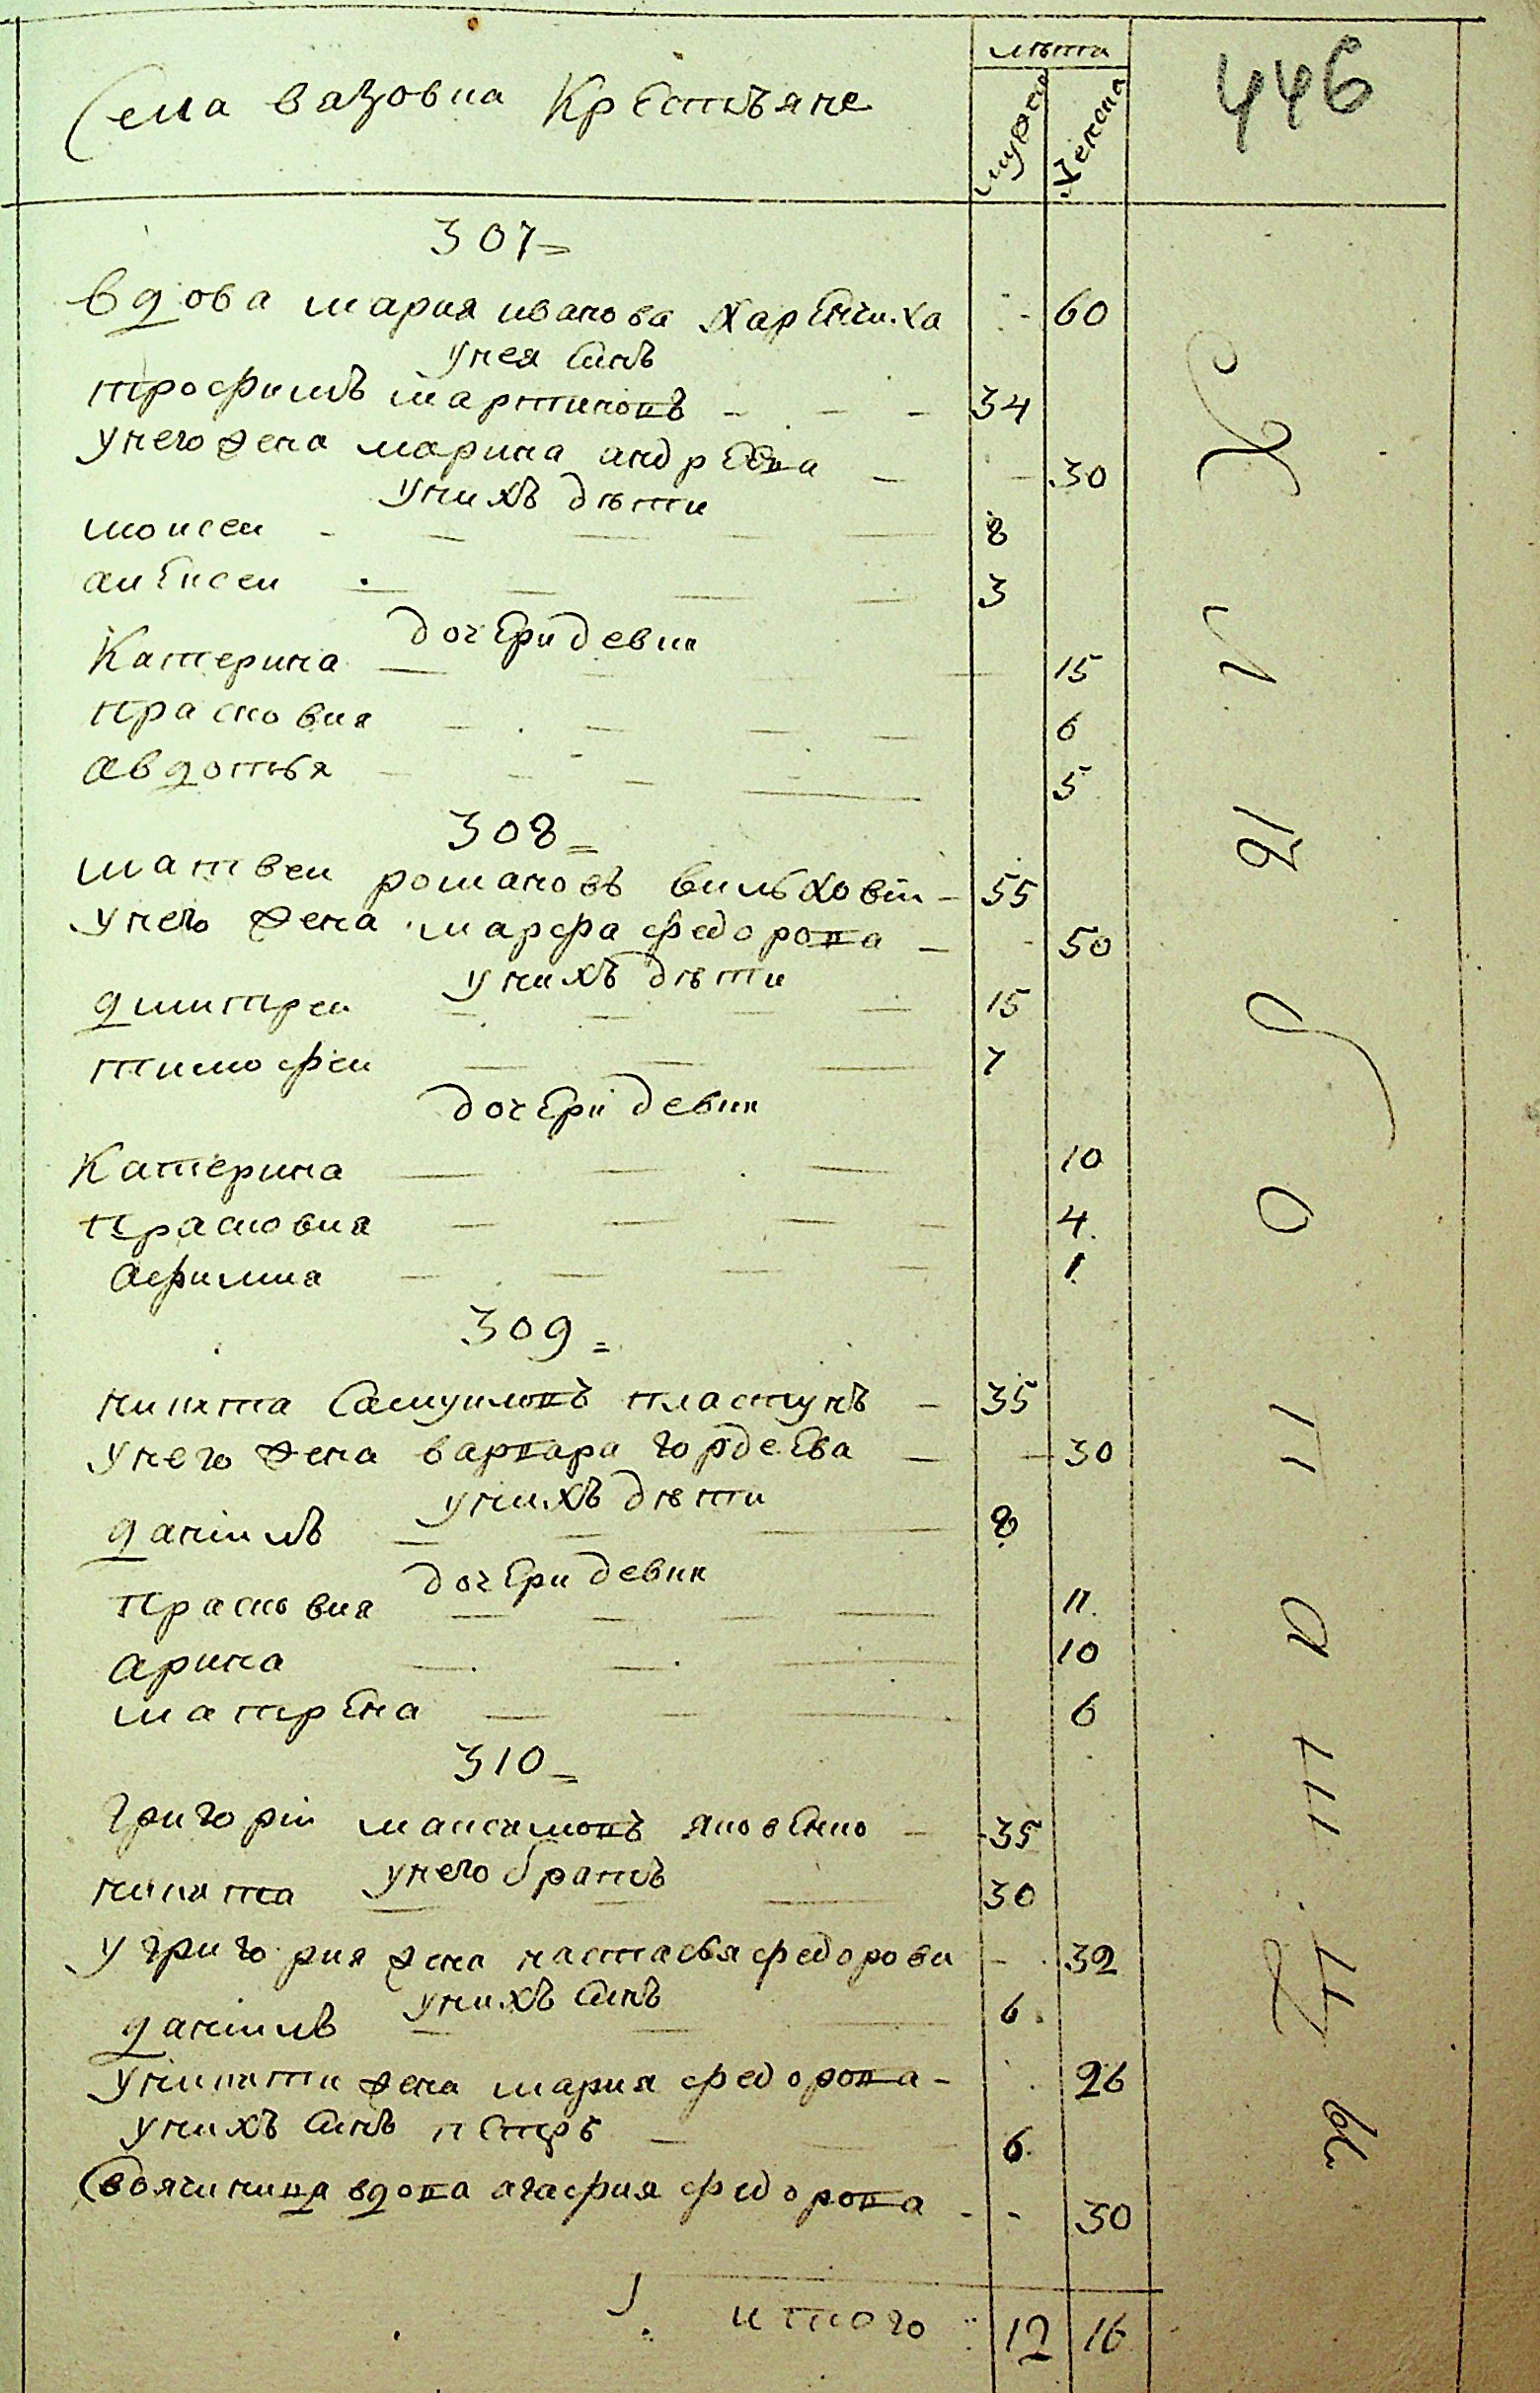 лѣта
Села вязовка Крестьяне
мужска
женска
446
307
вдова мария иванова харѣнчиха 60
у нея синъ
трофимъ мартиновъ 34
у него жена марина андрѣева 30
у нихъ дѣти
моисеи 8
алексеи 3
дочери девки
Катерина 15
прасковия 6
авдотья 5
308
матвеи романовъ вильховій 55
у него жена марфа федорова 50
у нихъ дѣти
дмитреи 15
тимофеи 7
дочери девки
Катерина 10
прасковия 4
афимия 1
309
никита самуиловъ пластунъ 35
у него жена варвара гордеева 30
у нихъ дѣти
данiилъ 8
дочери девки
прасковия 11
арина 10
матрена 6
310
григорiй максимовъ яковенко 35
у него братъ
никита 30
у григория жена настасья федорова 32
у нихъ синъ
данiилъ 6
у никити жена мария федорова 26
у нихъ синъ петръ 6
своячиница вдова агафия федорова 30
итого 12 16